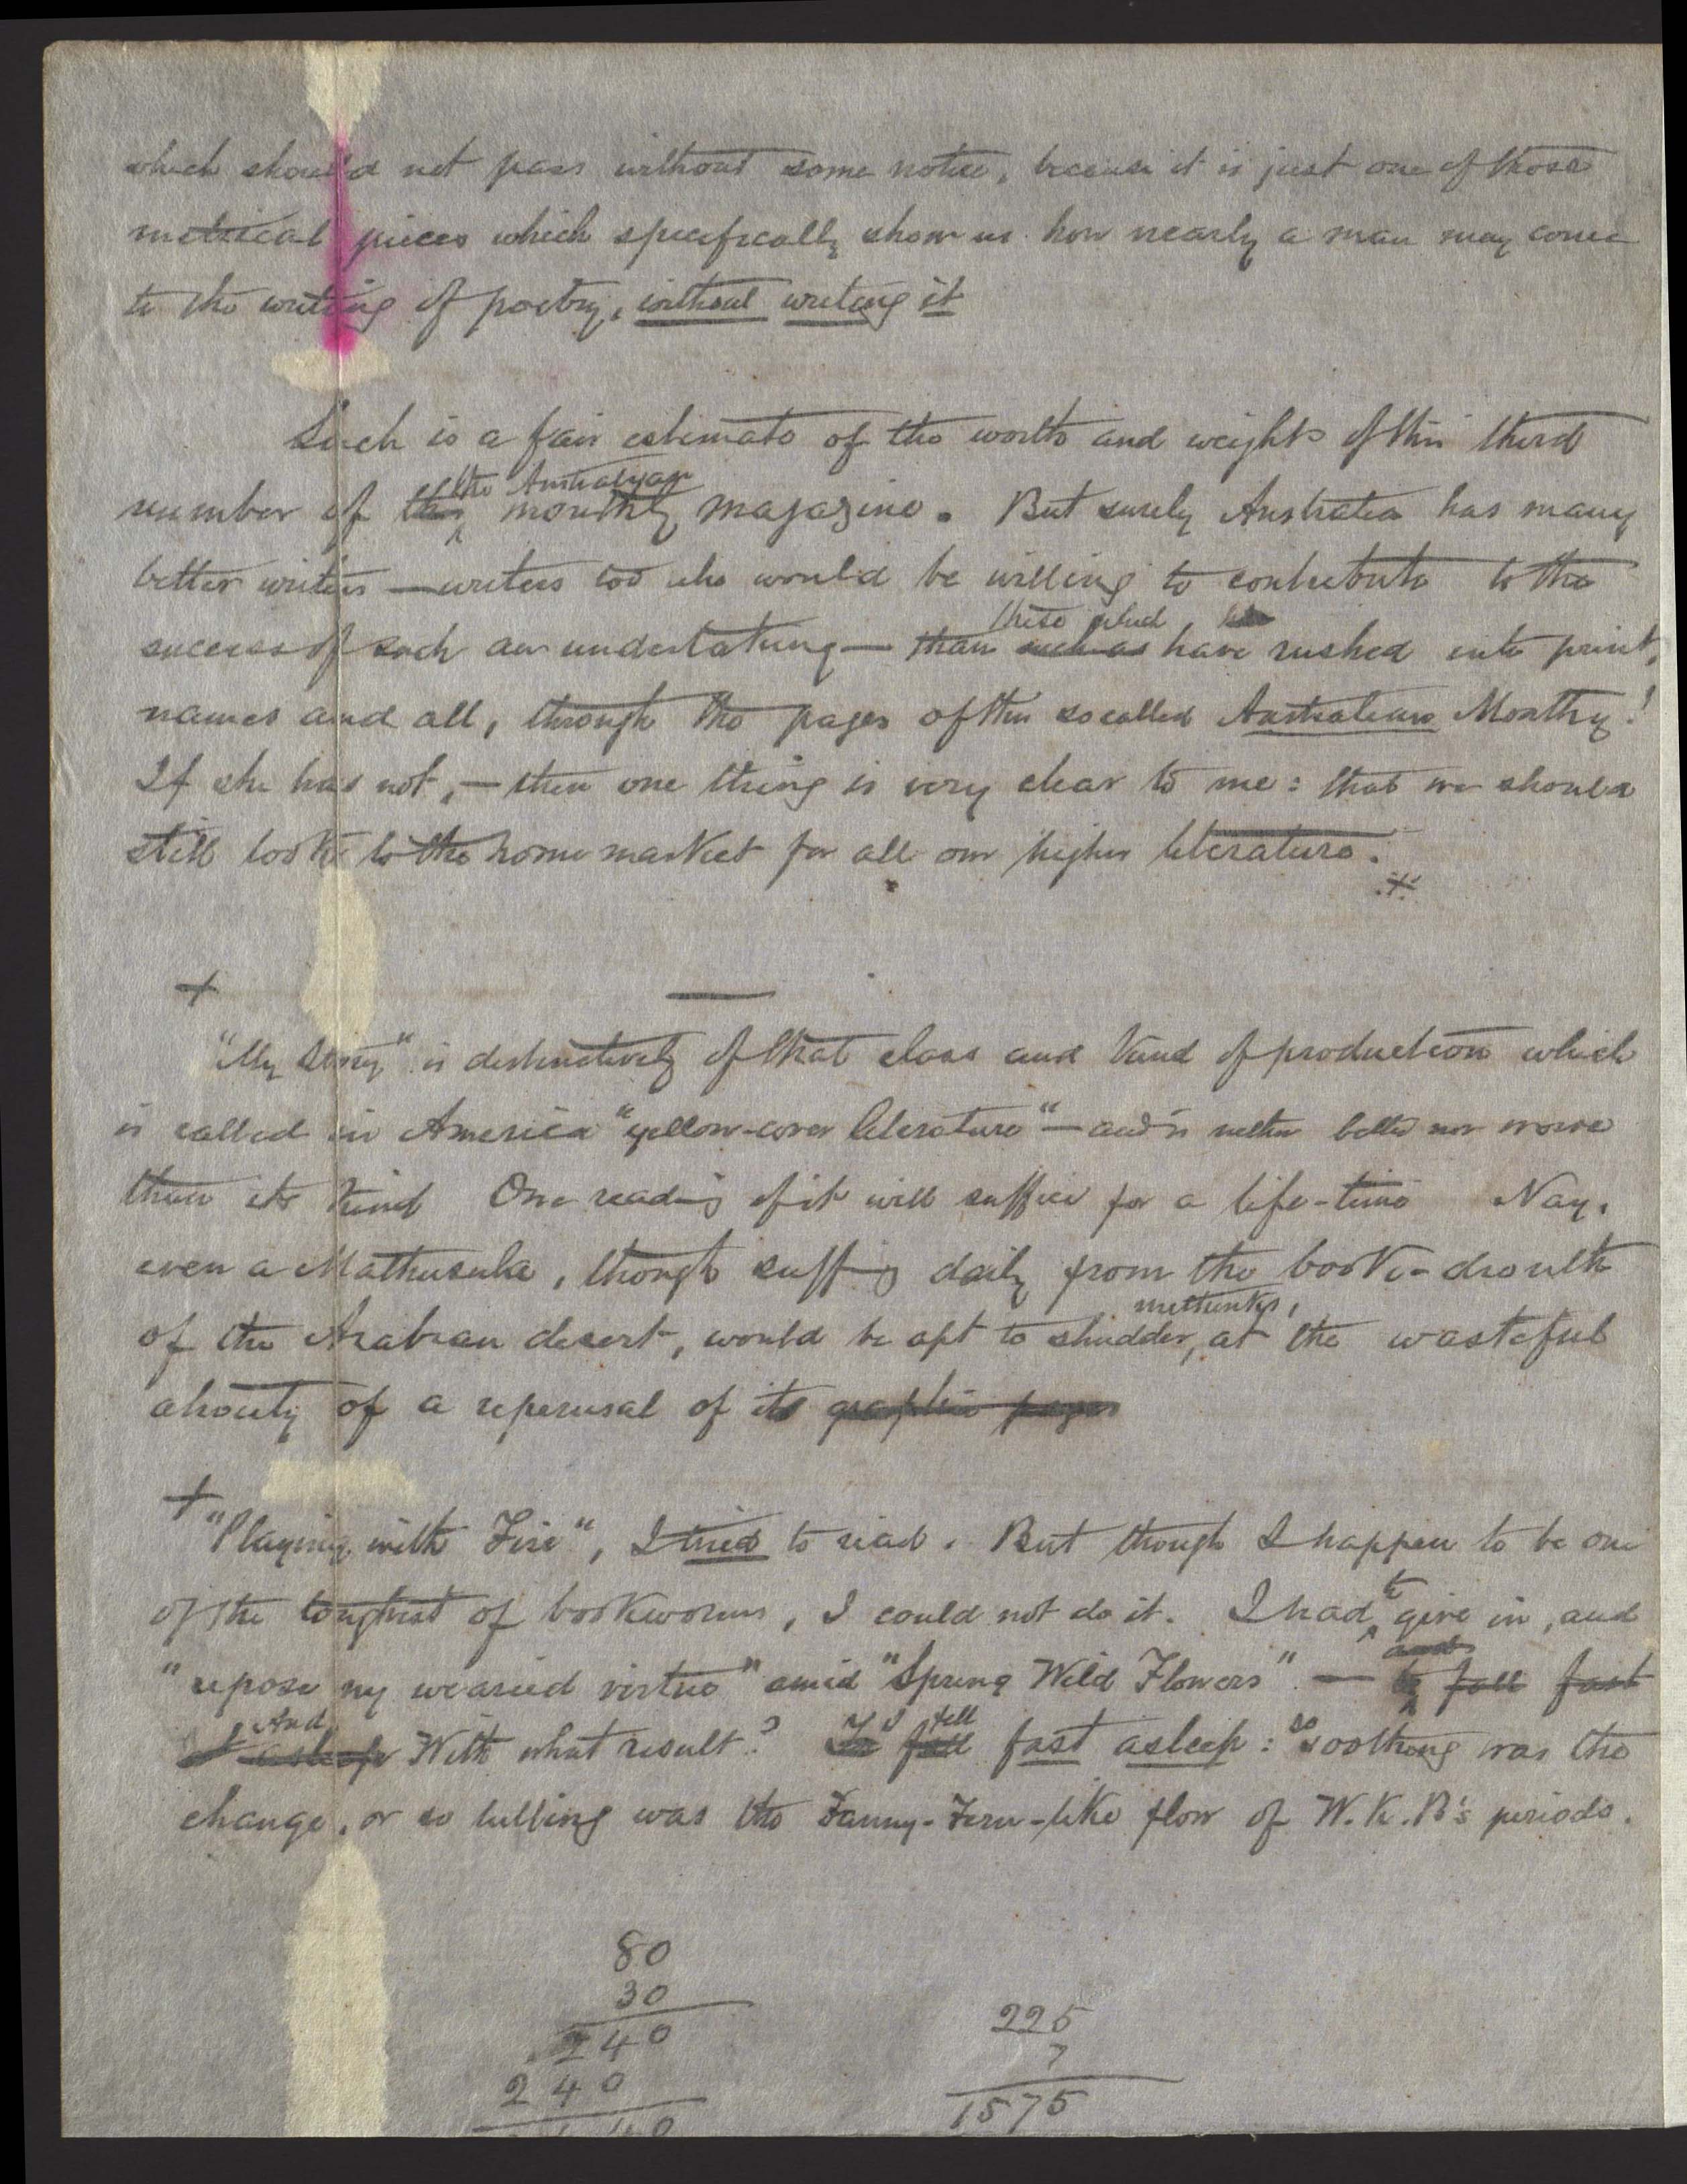 which should not pass without some notice, because it is just one of those
metrical pieces which specifically show us how nearly a man may come
to the writing of poetry, without writing it
Such is a fair estimate of the worth and weight of this third
the Australian
number of this monthly magazine. But surely Australia has many
better writers — writers too who would be willing to contribute to the
these which
success of such an undertaking — than such as have rushed into print,
names and all, through the pages of this socalled Australian Monthly!
If she has not, — then one thing is very clear to me: that we should
still look to the home market for all our higher literature.
+
+
"My Story" is distinctively of that class and kind of production which
is called in America "yellow-cover literature" — and is neither better nor worse
than its kind One reading of it will suffice for a life-time Nay,
even a Mathusula, though suffering daily from the book-drouth
methinks,
of the Arabian desert, would be apt to shudder, at the wasteful
ahouty of a reperusal of its graphic pages
+
"Playing with Fire", I tried to read. But though I happen to be one
of the toughest of bookworms, I could not do it. I had to give in, and
"repose my wearied virtue" amid "Spring Wild Flowers". — and fall fast
And fell
asleep With what result? I fall fast asleep: so soothing was the
change, or so lulling was the Fanny-Fern-like flow of W.K.B's periods.
80
30
240
240
225
7
1575